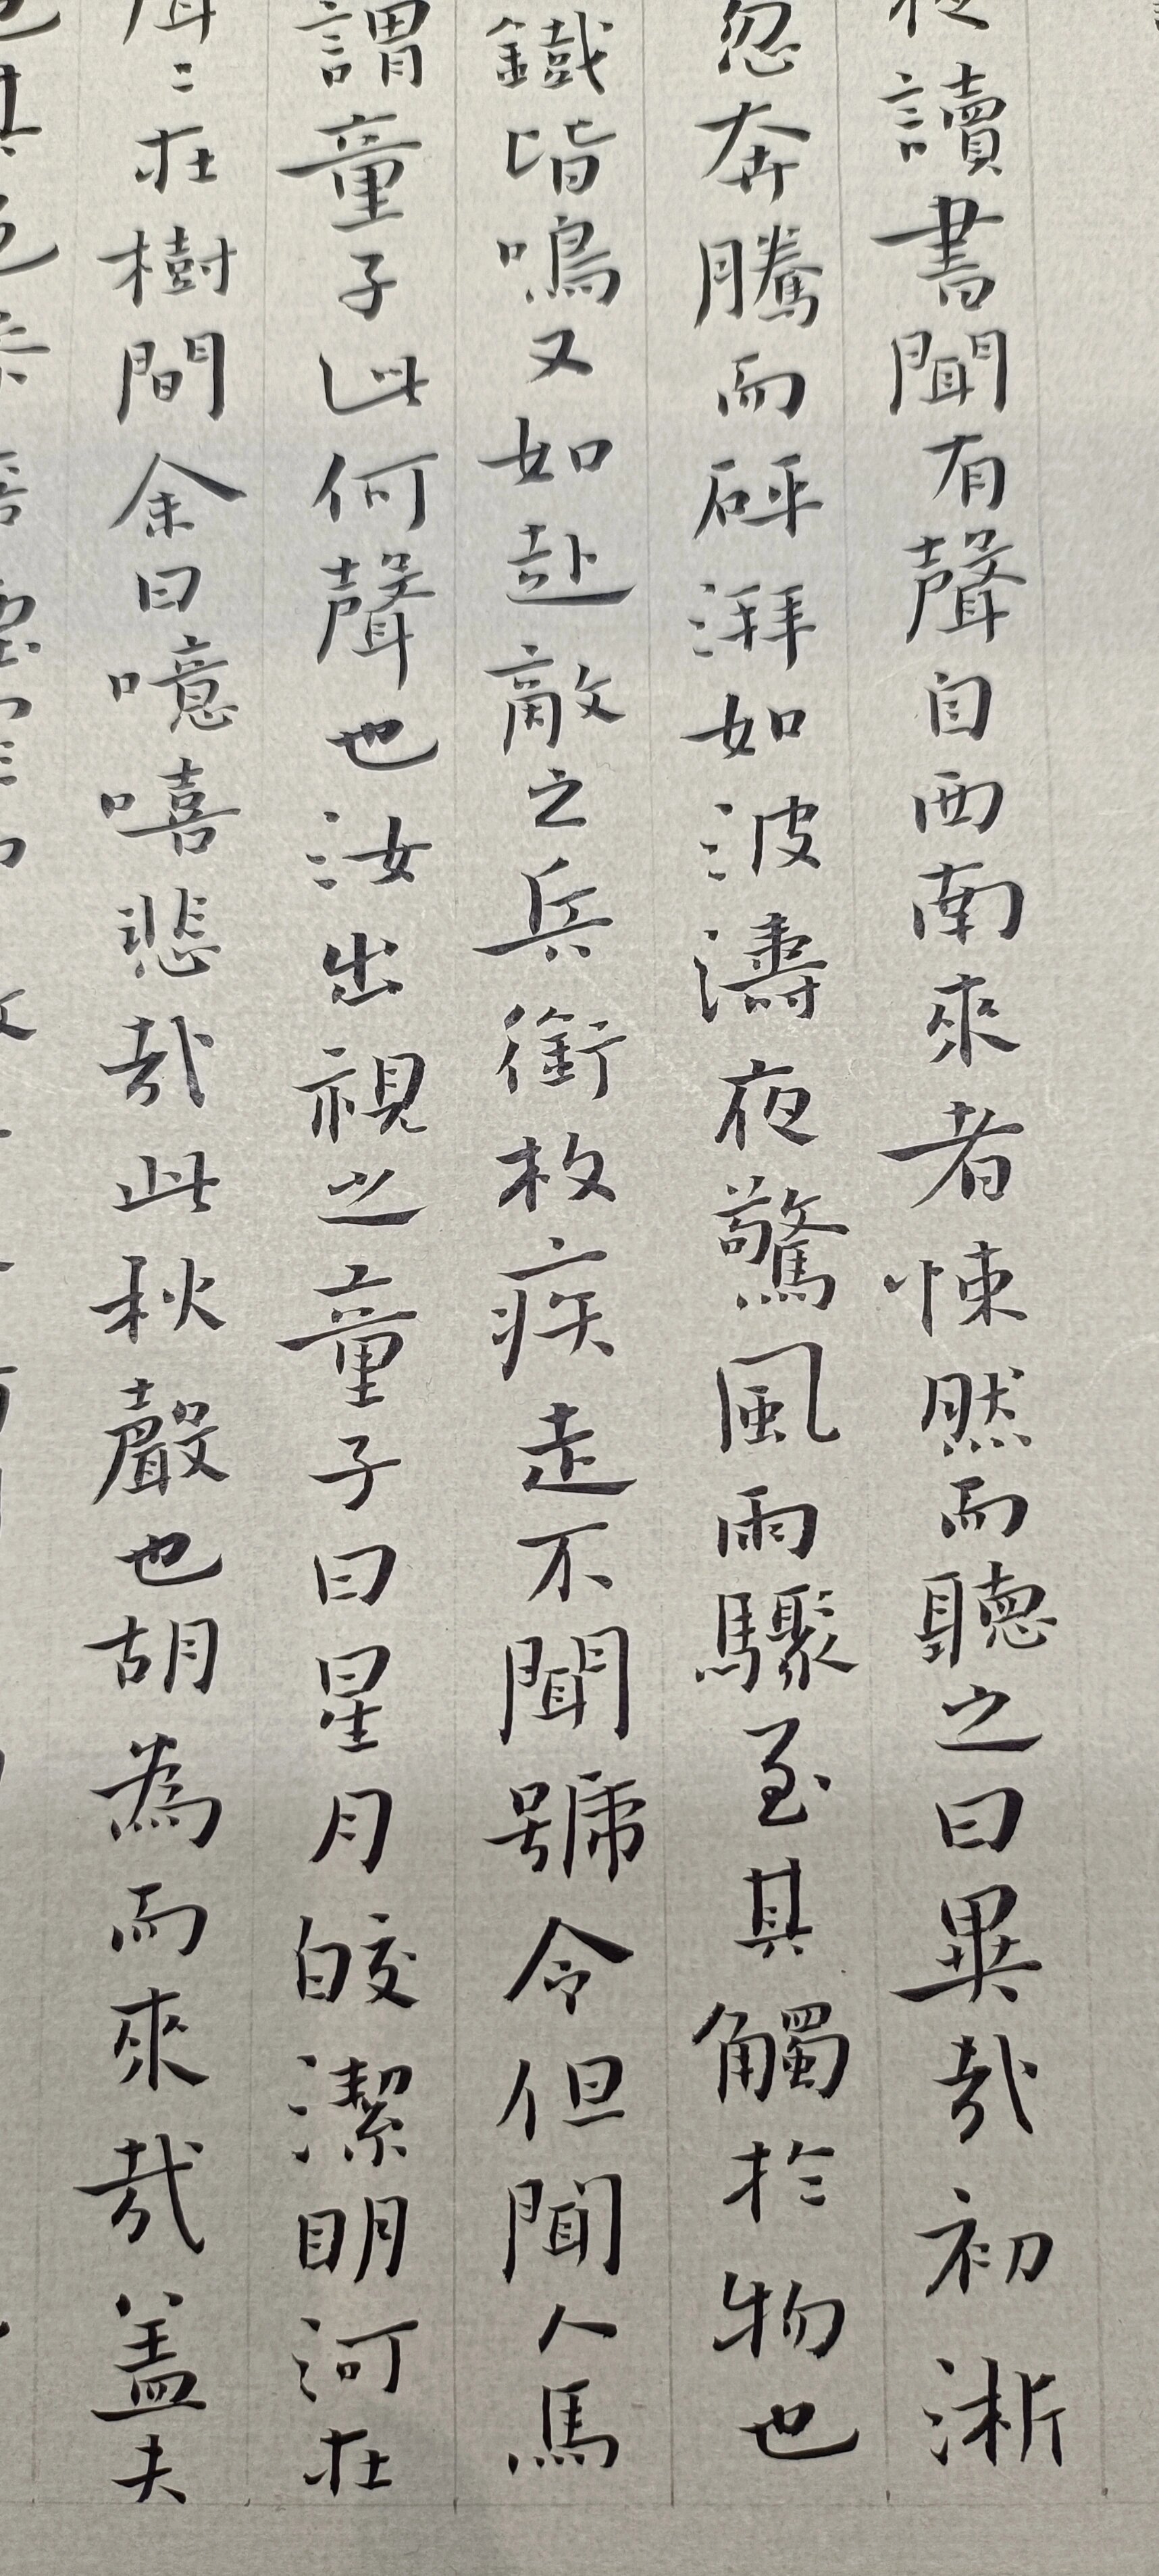 夜讀書聞有聲自西南來者悚然而聽之曰異哉初淅
忽奔騰而砰湃如波濤夜驚風雨驟至其觸於物也
鐵皆鳴又如赴敵之兵銜枚疾走不聞號令但聞人馬
謂童子此何聲也汝出視之童子曰星月皎潔明河在
聲〻在樹間余曰噫嘻悲哉此秋聲也胡為而來哉盖夫